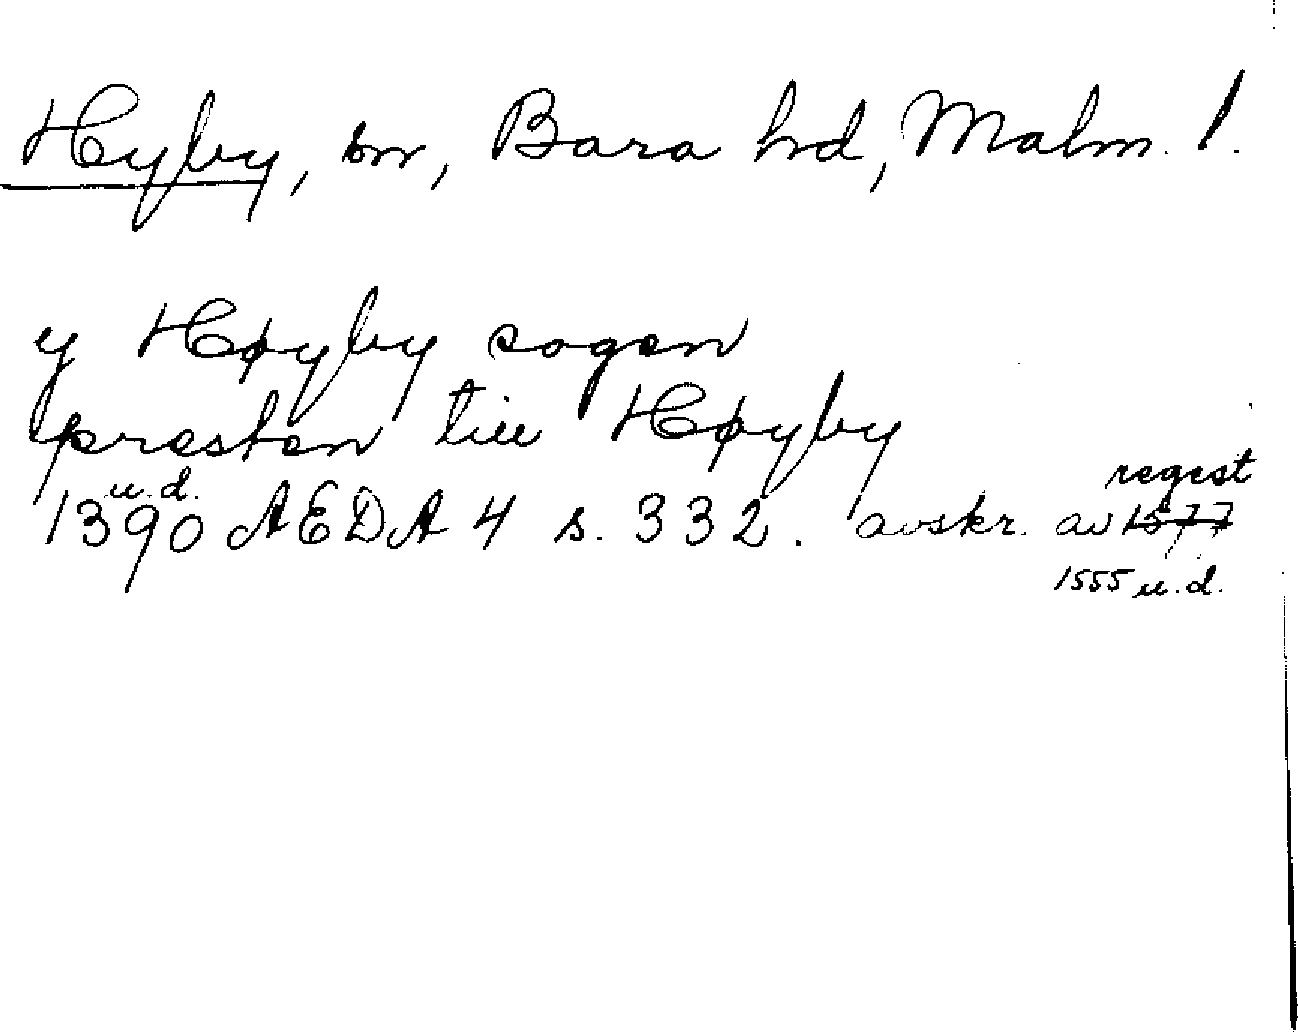 Hyby, sn, Bara hd, Malm. l.
y Høyby sogen
presten till Høyby
u. d.
1390 AEDA 4 s. 332. avskr. av 1577
regest
1555 u. d.